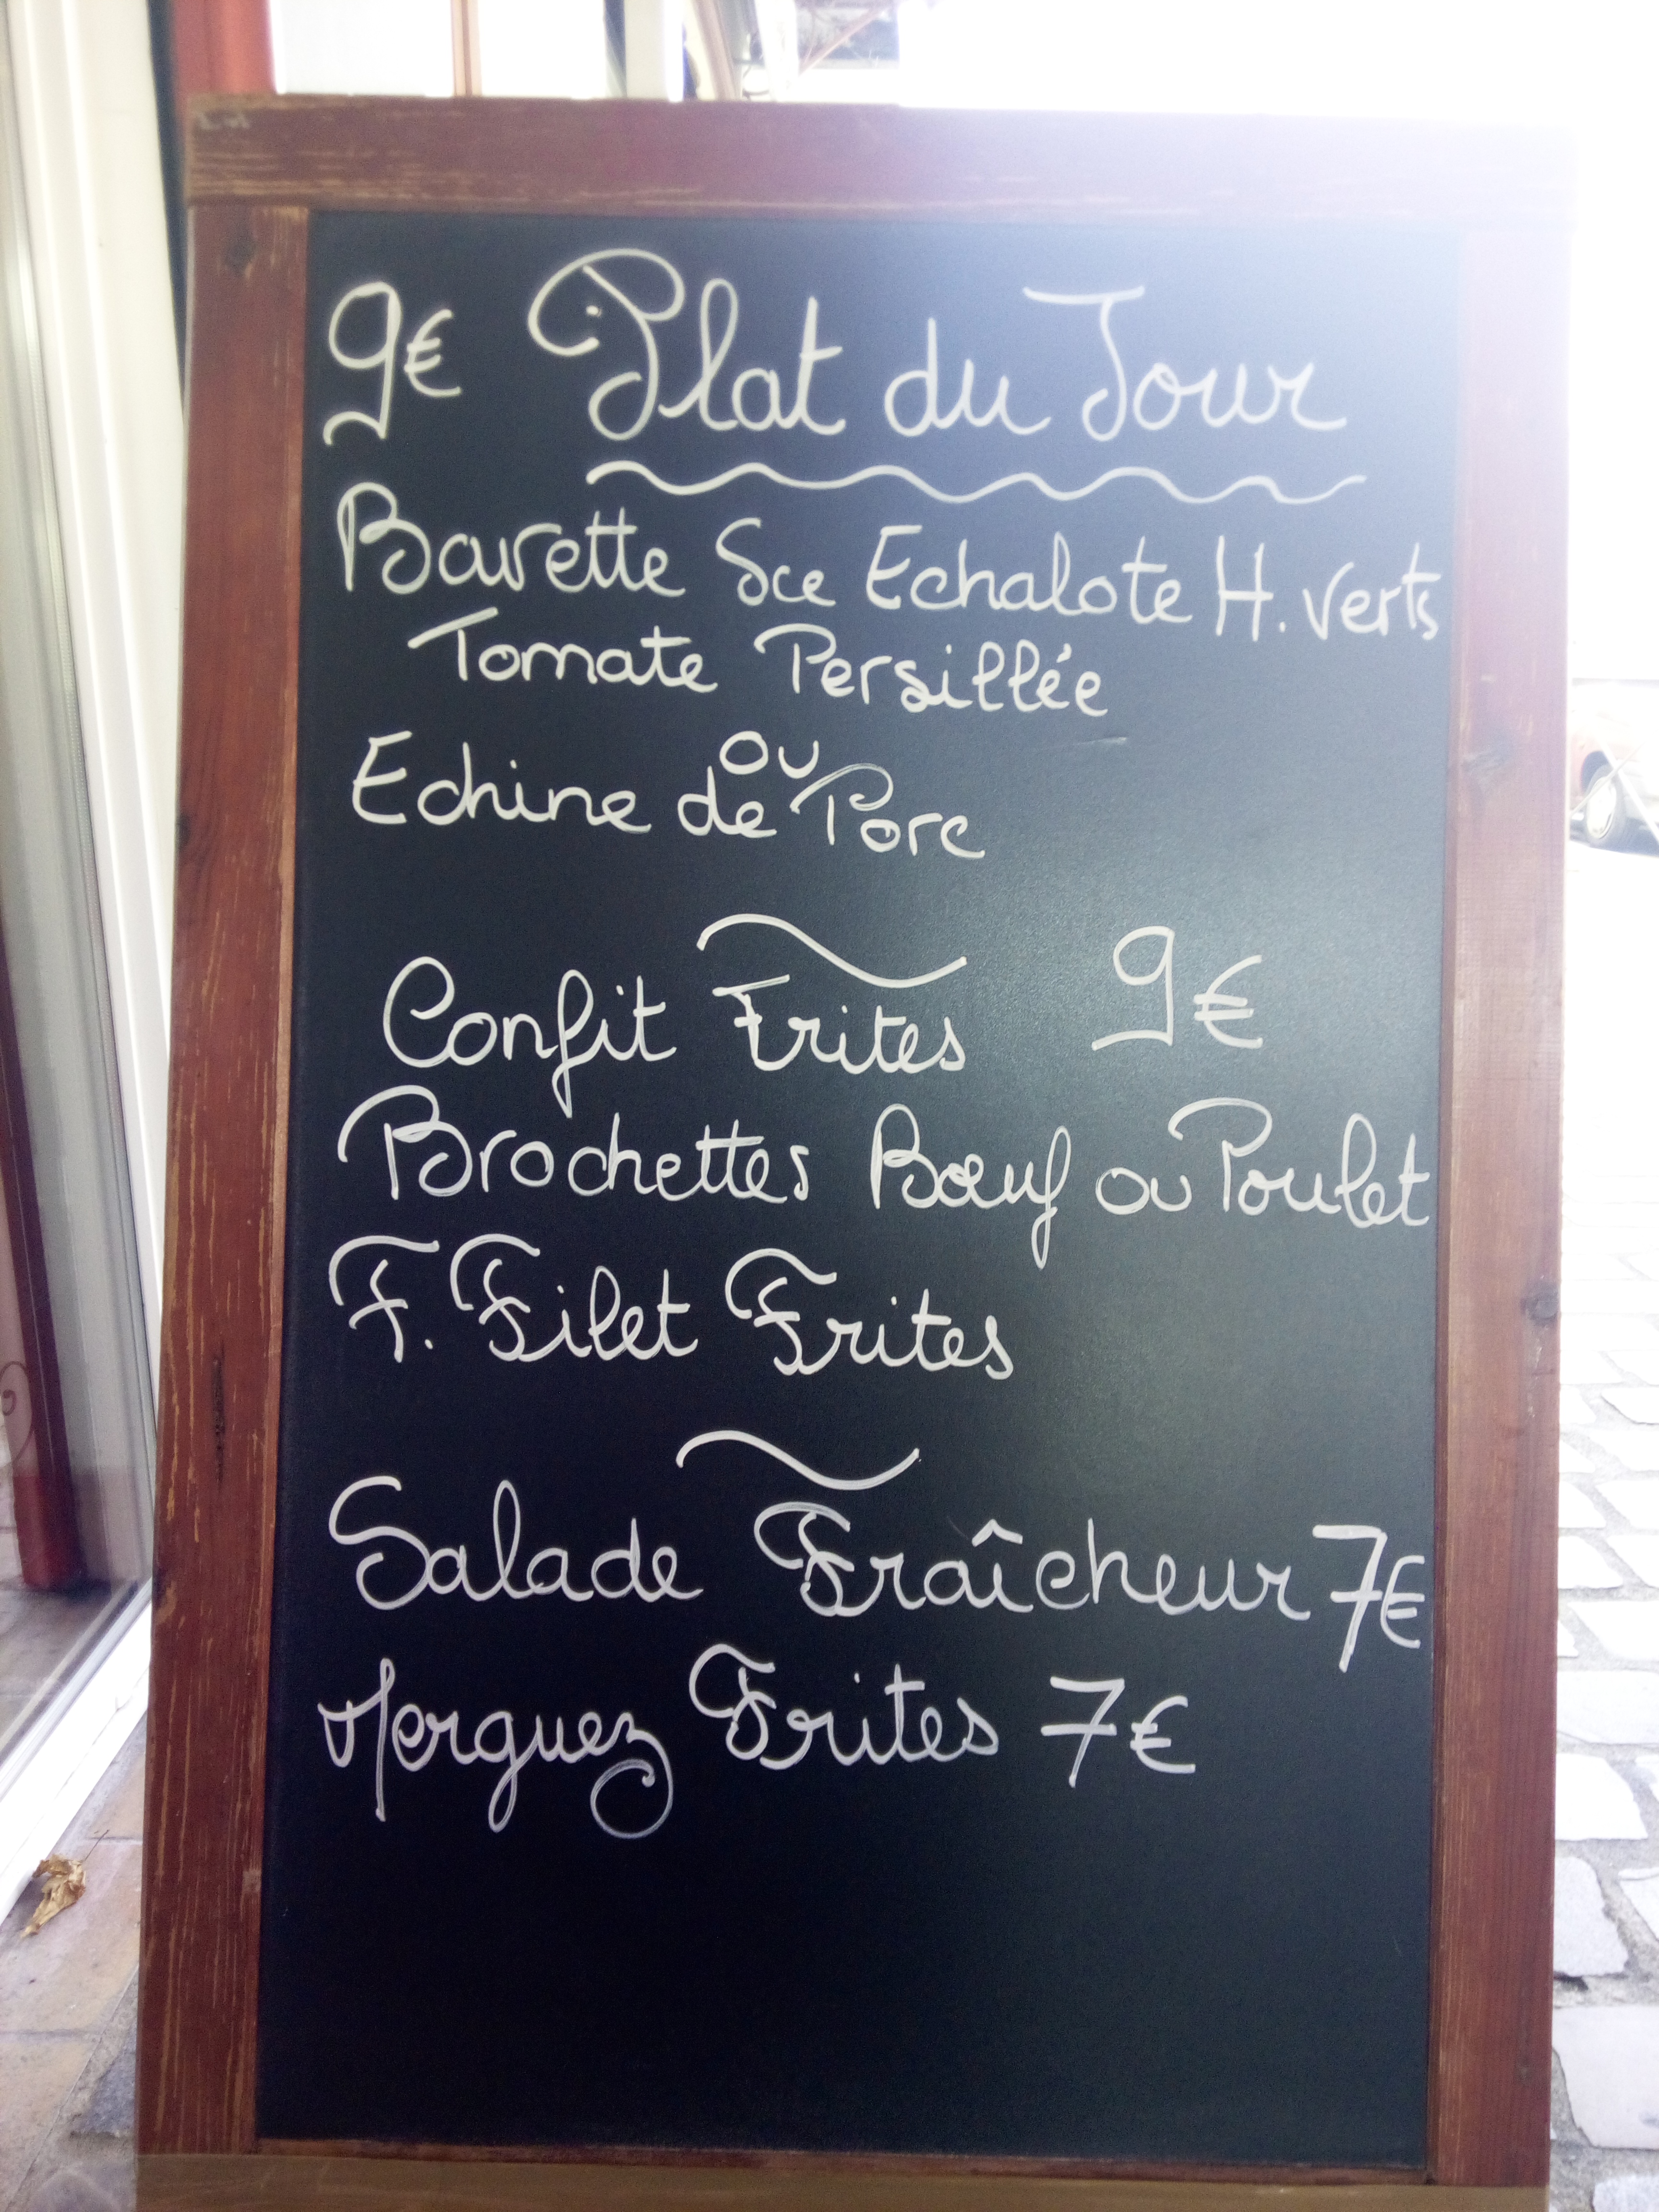 9€ Plat du Jour
Bavette Sce Echalote H. verts
Tomate Persillée
ou
Echine de Porc
Confit Frites 9€
Brochettes Bœuf ou Poulet
F. Filet Frites
Salade Fraîcheur 7€
Merguez Frites 7€